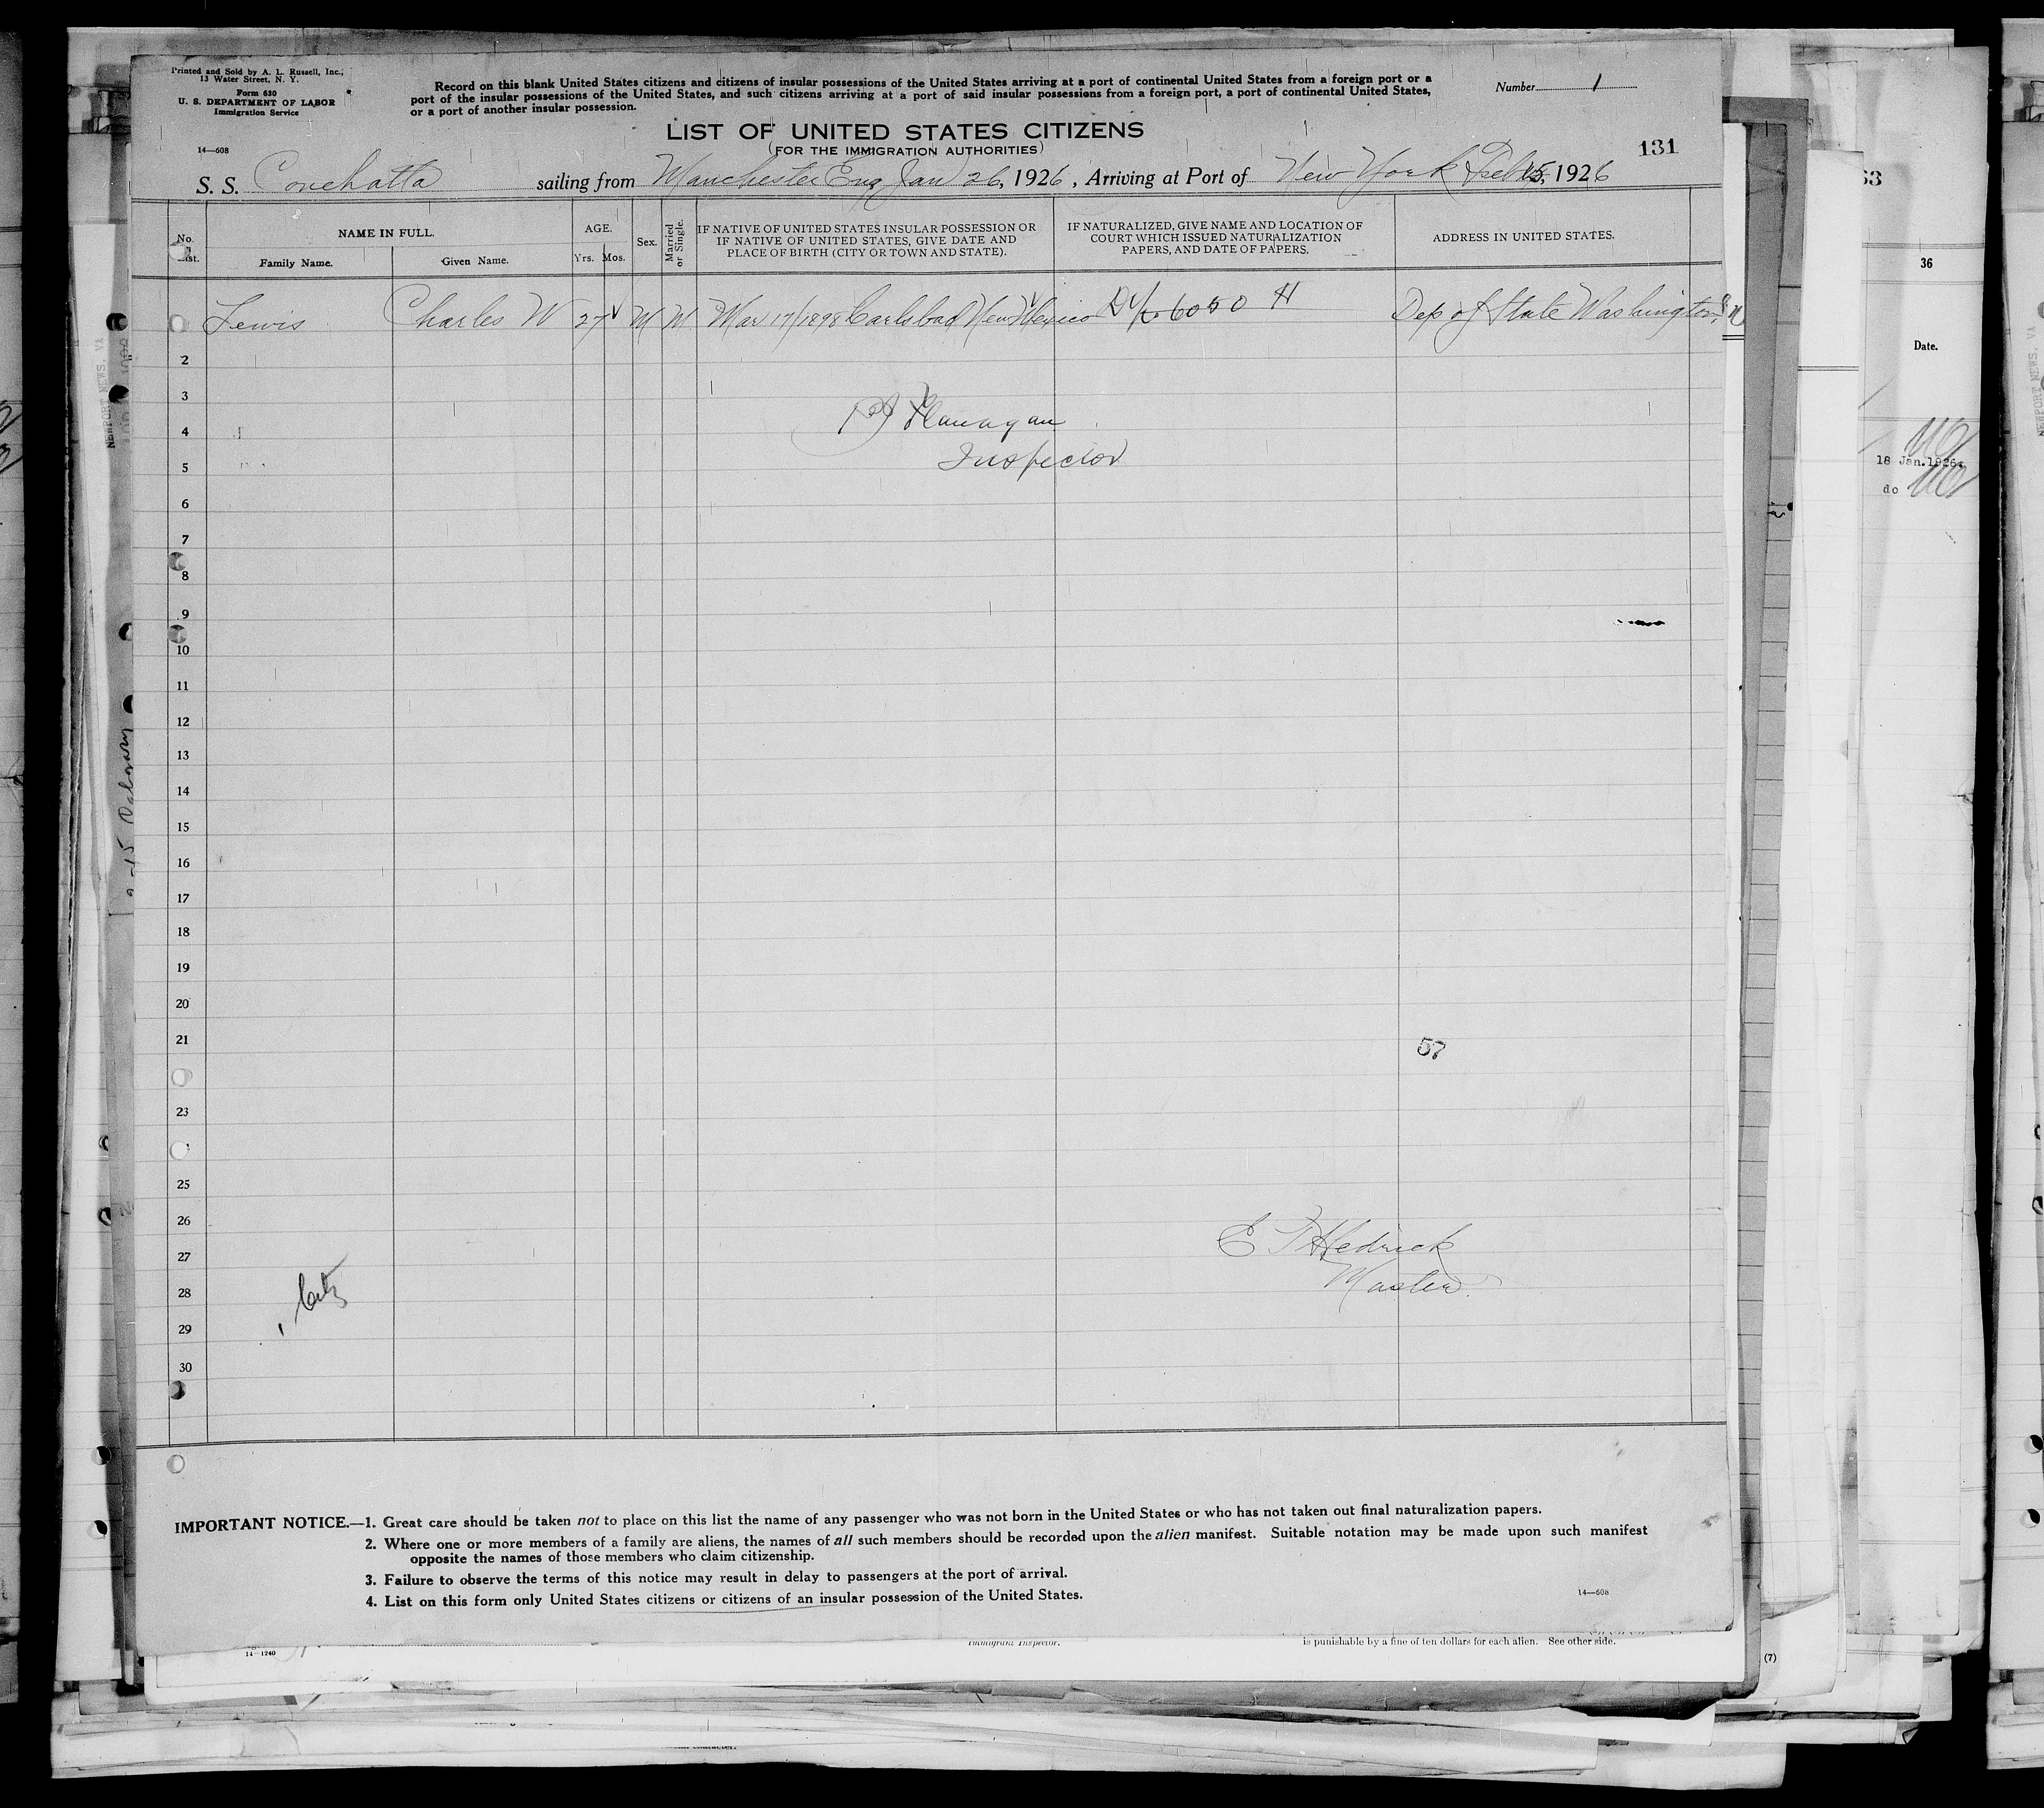 Printed and Sold by A. L. Russell, Inc.,
13 Water Street, N. Y.
Form 630
U. S. DEPARTMENT OF LABOR
Immigration Service
14—608
Record on this blank United States citizens and citizens of insular possessions of the United States arriving at a port of continental United States from a foreign port or a
port of the insular possessions of the United States, and such citizens arriving at a port of said insular possessions from a foreign port, a port of continental United States,
or a port of another insular possession.
Number 1
LIST OF UNITED STATES CITIZENS
(FOR THE IMMIGRATION AUTHORITIES)
131
S. S. Conehatta sailing from Manchester Eng Jan 26, 1926, Arriving at Port of New York Feb 15, 1926
No. List.
NAME IN FULL.
Family Name.
Given Name.
AGE.
Yrs. Mos.
Sex.
Married or Single.
IF NATIVE OF UNITED STATES INSULAR POSSESSION OR
IF NATIVE OF UNITED STATES, GIVE DATE AND
PLACE OF BIRTH (CITY OR TOWN AND STATE).
IF NATURALIZED, GIVE NAME AND LOCATION OF
COURT WHICH ISSUED NATURALIZATION
PAPERS, AND DATE OF PAPERS.
ADDRESS IN UNITED STATES.
Lewis Charles W 27 M M Mar 17/1898 Carlsbad New Mexico 6050 H Dep of State Washington
2
3
4
Flanagan
5
Inspector
6
7
8
9
10
11
12
13
14
15
16
17
18
19
20
21
57
23
25
26
27
E T Hedrick
28
Master
29
30
IMPORTANT NOTICE.—1. Great care should be taken not to place on this list the name of any passenger who was not born in the United States or who has not taken out final naturalization papers.
2. Where one or more members of a family are aliens, the names of all such members should be recorded upon the alien manifest. Suitable notation may be made upon such manifest
opposite the names of those members who claim citizenship.
3. Failure to observe the terms of this notice may result in delay to passengers at the port of arrival.
4. List on this form only United States citizens or citizens of an insular possession of the United States.
14—608
14—1240
Immigrant Inspector.
is punishable by a fine of ten dollars for each alien. See other side.
(7)
53
36
Date.
18 Jan. 1926
do
NEWPORT NEWS, VA